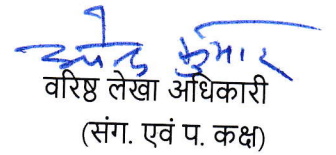 कुमार
वरिष्ठ लेखा अधिकारी
(संग. एवं प. कक्ष)